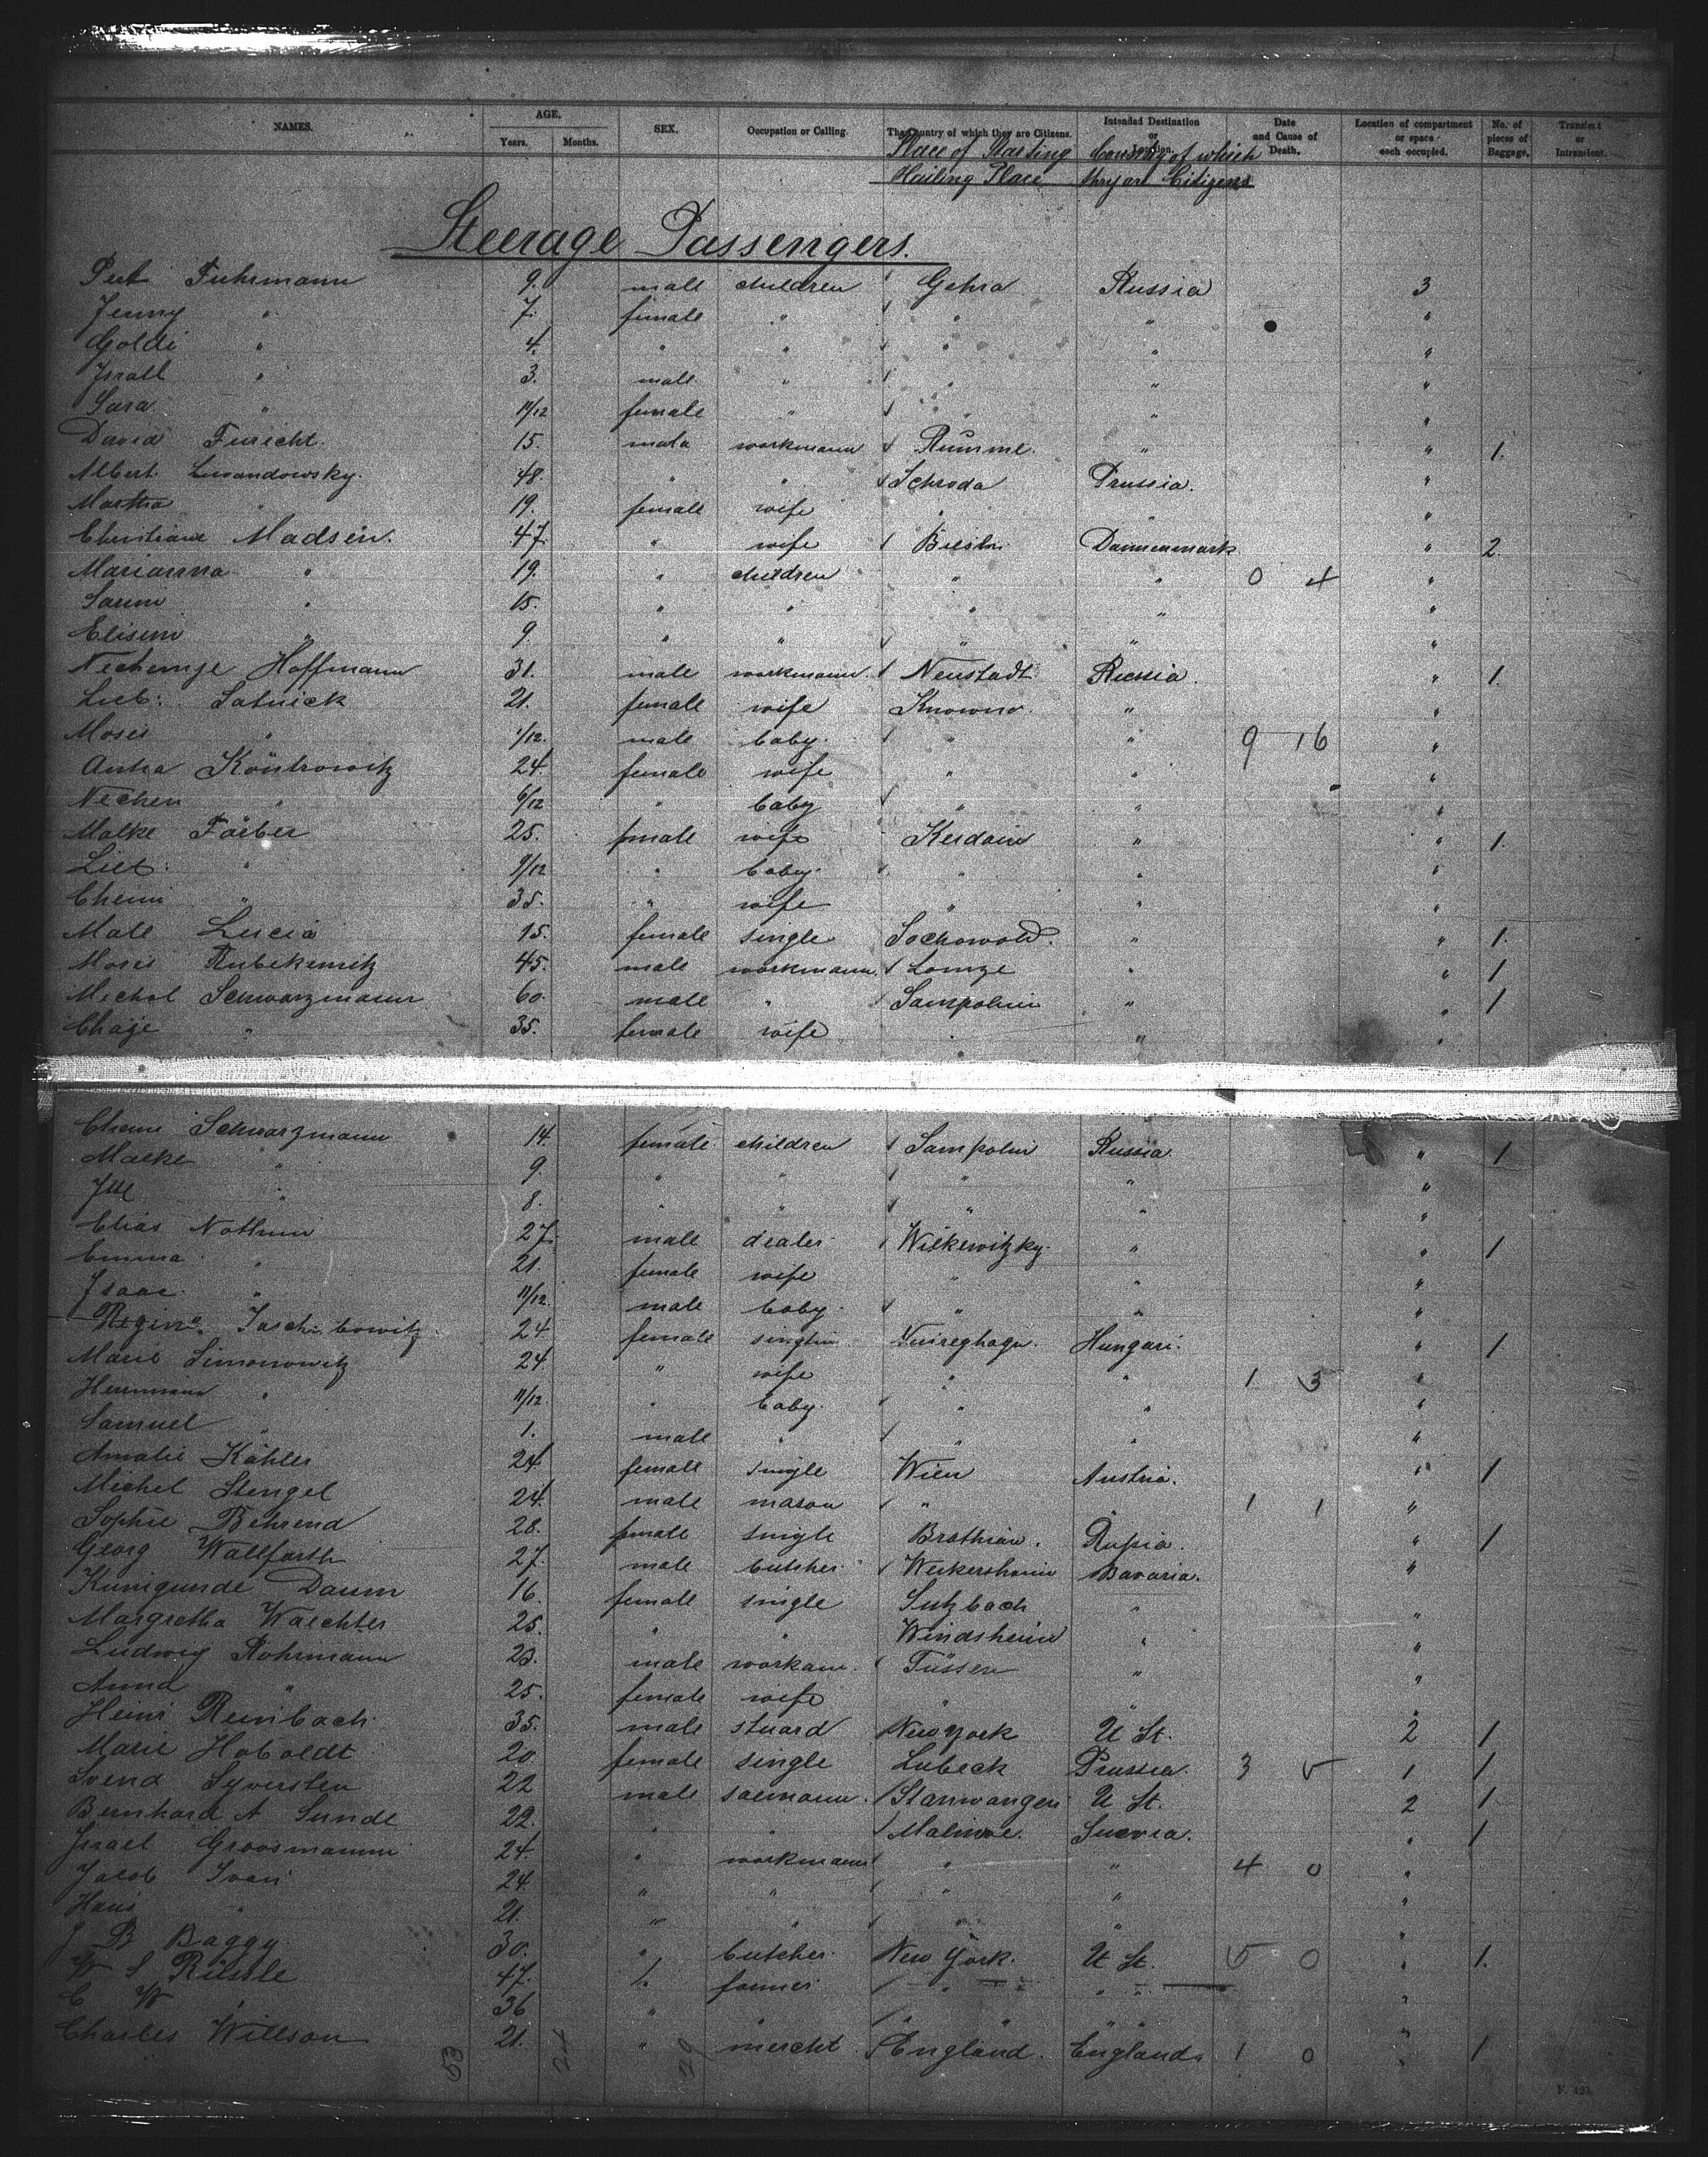 NAMES. AGE. SEX. Occupation or Calling. The Country of which they are Citizens. Intended Destination or Location. Date and Cause of Death. Location of compartment or space each occupied. No. of pieces of Baggage. Transient or Intransient.
Years. Months.
Place of Starting Country of which
Hailing Place they are Citizens
Steerage Passengers.
Fuhrmann 9. male children Gehra Russia 3
Jenny " 7. female " " " "
Goldi " 4. " " " " "
Israel " 3. male " " " "
Sara " 11/12 female " " " "
David Furicht. 15. male workmann Rumme. " " 1.
Albert Lewandowsky. 48. " " Schroda Prussia. "
Martha " 19. female wife " " "
Christiane Madsen. 47. " wife Dannemark " 2.
Marianna " 19. " children " " 0 4 "
15. " " " " "
9. " " " " "
Hoffmann 31. male workmann. Neustadt Russia. " 1.
Lieb: Satnick 21. female wife Knowno. " "
Moses " 1/12. male baby. " " 9 16 "
24. female wife " " "
Nechen " 6/12 " baby " " "
Malke Färber 25. female wife Keidain " " 1.
" 9/12 " baby. " " "
" 35. " wife " " "
Male Lucia 15. female single Sochowold. " " 1.
Moses 45. male workmann. Lomze " " 1
Mechel Schwarzmann 60. male " Sampolin " " 1
Chaje " 35. female wife " " "
Schwarzmann 14. female children Sampolin Russia " 1
Malke " 9. " " " " "
" 8. " " " " "
Elias 27. male dealer Wilkewitzky. " " 1
Emma " 21. female wife " " "
Isaac " 11/12. male baby. " " "
24. female Hungari. " 1
Marie Simonowitz 24. " wife " " 1 3 "
" 11/12. " baby. " " "
Samuel " 1. male " " " "
Amalie Kähler 24 female single Wien Austria. " 1
Michel Stengel 24. male mason " 1 1 "
Sophie Behrend 28. female single Brathian. Russia. " 1
Georg Wallfarth 27. male butcher Weikersheim Bavaria. "
Kunigunde Daum 16. female single Sulzbach " "
Margretha Waechter 25. " " Windsheim " "
Ludwig Rohrmann 23. male workam. Füssen " "
Anna " 25. female wife " " "
Heinr Reinbach 35. male stuard New york U St. 2 1
Marie Haboldt 20. female single Lubeck Prussia. 3 5 1 1
Svend Syversten 22 male saemann. Stanwangen U St. 2 1
Bernhard A Sunde 22. " " Malmoe. Suevia. " 1
Israel Groosmann 24. " workmann " " 4 0 "
Jacob 24. " " " " "
Hans " 21. " " " " "
J B Baggy 30. " butcher New York. U St. 5 0 " 1.
W S 47. " farmer " " "
C W " 36 " " " " "
Charles Willson 21. " mercht England. England. 1 0 " 1
53 24 29
F. 421.